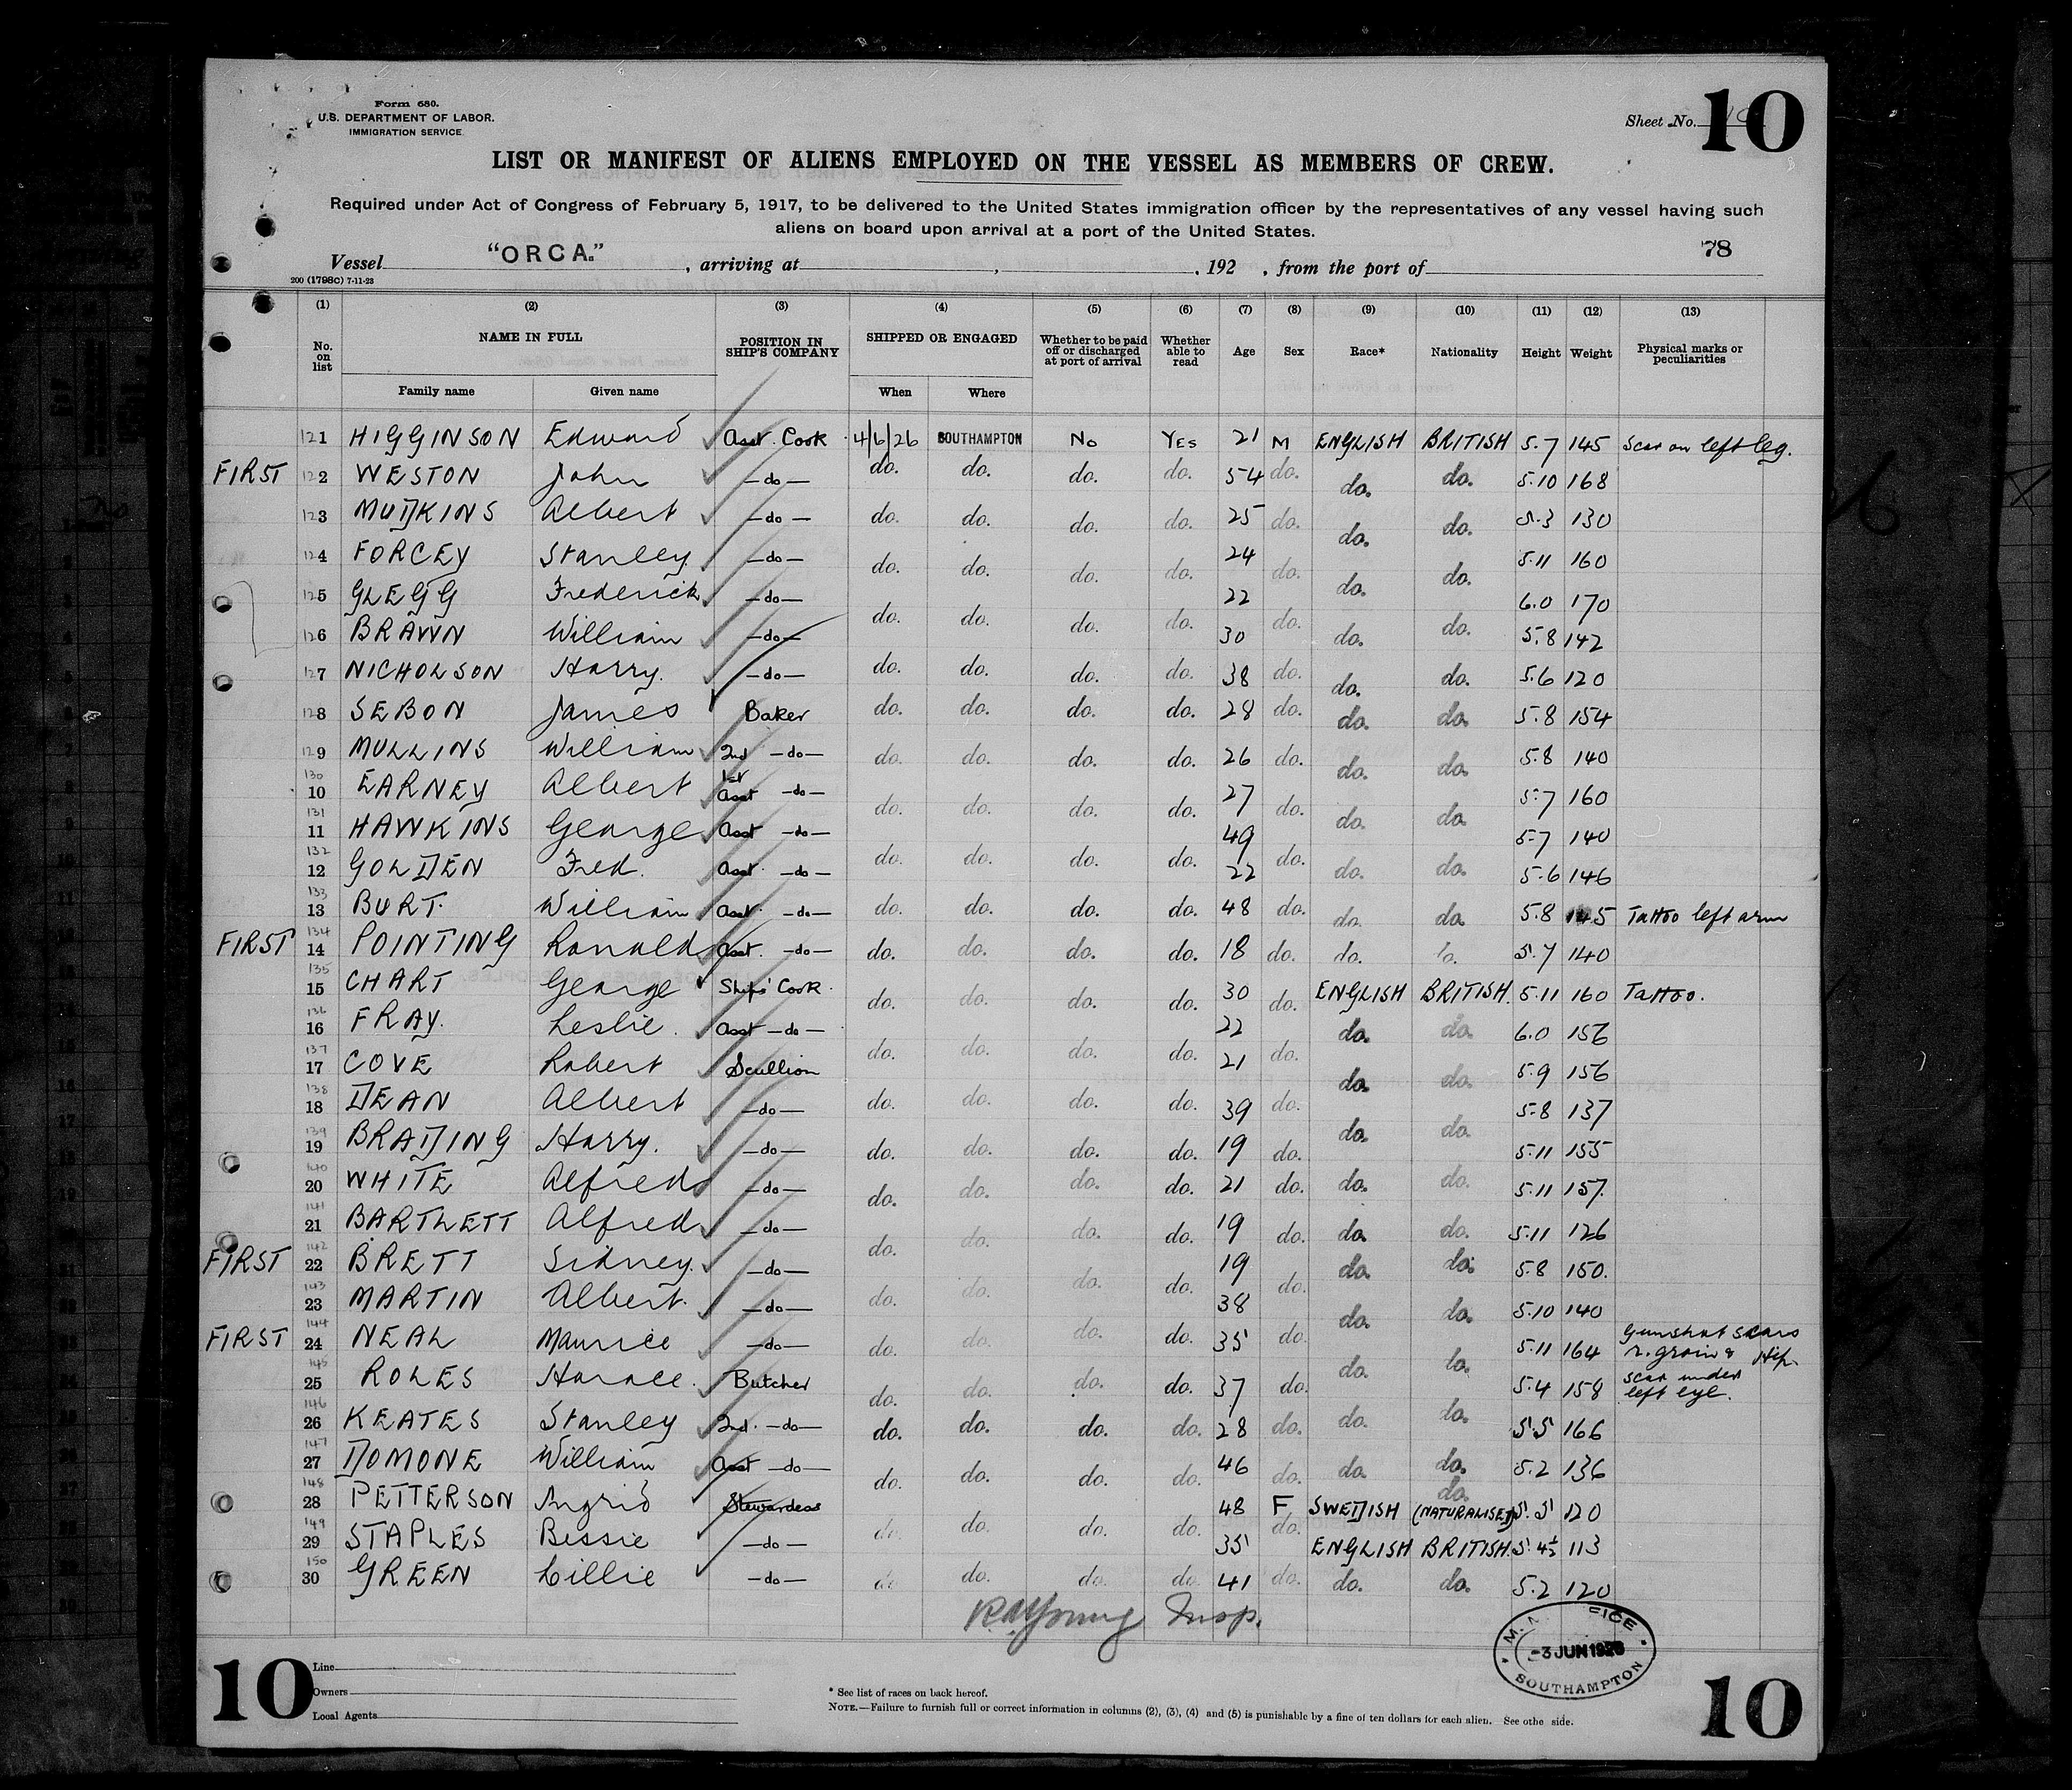 Form 680.
U.S. DEPARTMENT OF LABOR.
IMMIGRATION SERVICE
Sheet No. 10
LIST OR MANIFEST OF ALIENS EMPLOYED ON THE VESSEL AS MEMBERS OF CREW.
Required under Act of Congress of February 5, 1917, to be delivered to the United States immigration officer by the representatives of any vessel having such
aliens on board upon arrival at a port of the United States.
78
Vessel "ORCA." , arriving at , , 192 , from the port of
200 (1798C) 7-11-23
(1) (2) (3) (4) (5) (6) (7) (8) (9) (10) (11) (12) (13)
No. on list NAME IN FULL POSITION IN SHIP'S COMPANY SHIPPED OR ENGAGED Whether to be paid off or discharged at port of arrival Whether able to read Age Sex Race* Nationality Height Weight Physical marks or peculiarities
Family name Given name When Where
121 HIGGINSON Edward Asst. Cook 4/6/26 SOUTHAMPTON No YES 21 M ENGLISH BRITISH 5.7 145 Scar on left leg.
FIRST 122 WESTON John -do- do. do. do. do. 54 do. do. do. 5.10 168
123 MUDKINS Albert -do- do. do. do. do. 25 do. do. do. 5.3 130
124 FORCEY Stanley. -do- do. do. do. do. 24 do. do. do. 5.11 160
125 GLEGG Frederick -do- do. do. do. do. 22 do. do. do. 6.0 170
126 BRAWN William -do- do. do. do. do. 30 do. do. do. 5.8 142
127 NICHOLSON Harry. -do- do. do. do. do. 38 do. do. do. 5.6 120
128 SEBON James Baker do. do. do. do. 28 do. do. do. 5.8 154
129 MULLINS William 2nd -do- do. do. do. do. 26 do. do. do. 5.8 140
130 10 EARNEY Albert 1st Asst -do- do. do. do. do. 27 do. do. do. 5.7 160
131 11 HAWKINS George Asst -do- 49 5.7 140
132 12 GOLDEN Fred. Asst. -do- do. do. do. do. 22 do. do. do. 5.6 146
133 13 BURT. William Asst. -do- do. do. do. do. 48 do. do. do. 5.8 145 Tattoo left arm
FIRST 134 14 POINTING Ronald Asst. -do- do. do. do. do. 18 do. do. do. 5.7 140
135 15 CHART George Ships' Cook. do. do. do. do. 30 do. ENGLISH BRITISH. 5.11 160 Tattoo.
136 16 FRAY. Leslie. Asst -do- 22 do. do. 6.0 156
137 17 COVE Robert Scullion do. do. do. do. 21 do. do. do. 5.9 156
138 18 DEAN Albert -do- do. do. do. do. 39 do. do. do. 5.8 137
139 19 BRADING Harry. -do- do. do. do. do. 19 do. 5.11 155
140 20 WHITE Alfred -do- do. do. do. do. 21 do. do. do. 5.11 157.
141 21 BARTLETT Alfred -do- do. do. do. do. 19 do. do. do. 5.11 126
FIRST 142 22 BRETT Sidney. -do- 19 do. do. 5.8 150.
143 23 MARTIN Albert. -do- do. do. do. do. 38 do. do. do. 5.10 140
FIRST 144 24 NEAL Maurice -do- do. do. do. do. 35 do. do. do. 5.11 164 Gunshot scars r. groin & Hip.
145 25 ROLES Horace. Butcher do. do. do. do. 37 do. 5.4 158 scar under left eye.
146 26 KEATES Stanley 2nd. -do- do. do. do. do. 28 do. do. do. 5.5 166
147 27 DOMONE William Asst -do- do. do. do. do. 46 do. do. do. 5.2 136
148 28 PETTERSON Ingrid Stewardess 48 F SWEDISH do. (NATURALISED) 5.5 120
149 29 STAPLES Bessie -do- do. do. do. do. 35 do. ENGLISH BRITISH. 5.4½ 113
150 30 GREEN Lillie -do- do. do. do. do. 41 do. do. do. 5.2 120
R.A. Young Insp.
-3 JUN 1926
SOUTHAMPTON
10
Line
Owners
Local Agents
* See list of races on back hereof.
NOTE.—Failure to furnish full or correct information in columns (2), (3), (4) and (5) is punishable by a fine of ten dollars for each alien. See othe side.
10